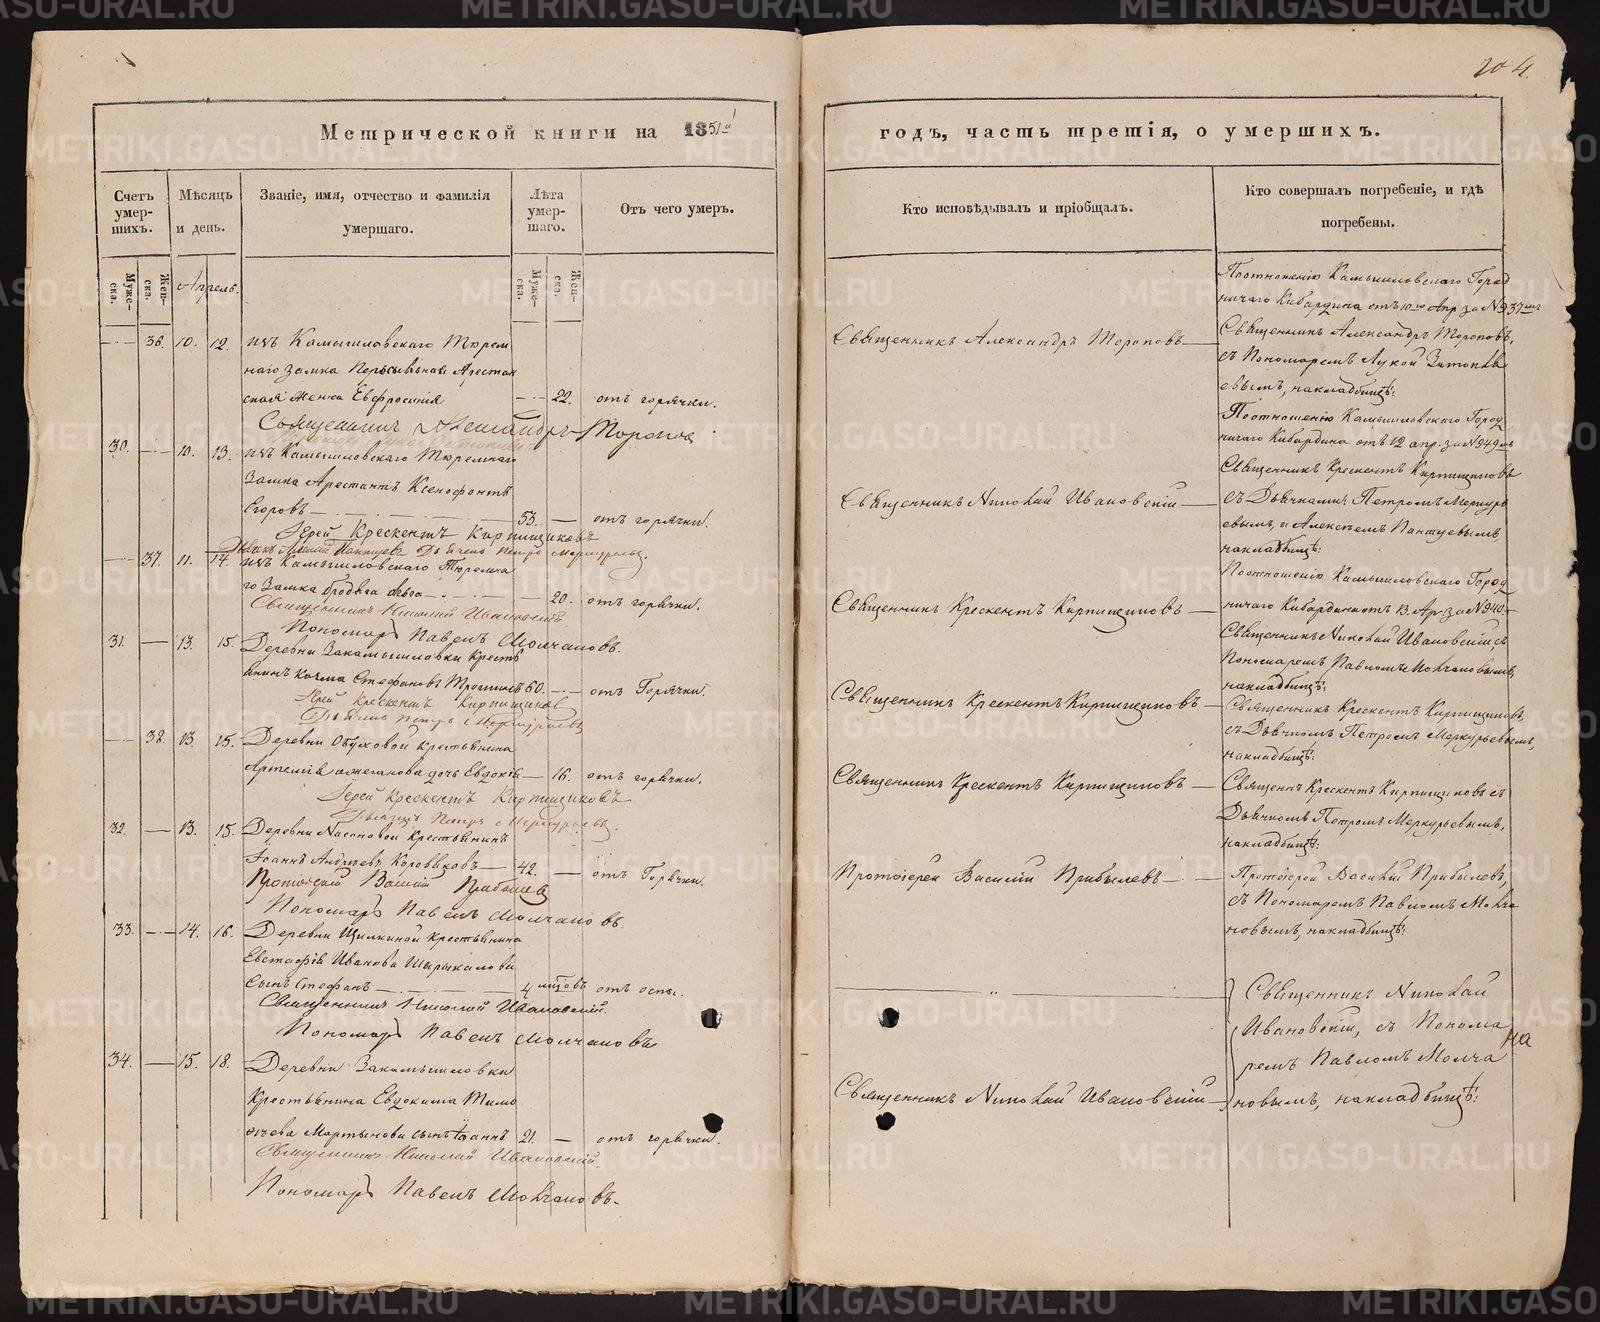 204.
Метрической книги на 1851й
годъ, часть третія, о умершихъ.
Счетъ умер-шихъ.
Мѣсяцъ и день.
Званіе, имя, отчество и фамилія умершаго.
Лѣта умер-шаго.
Отъ чего умеръ.
Кто исповѣдывалъ и пріобщалъ.
Кто совершалъ погребеніе, и гдѣ погребены.
Муже-ска.
Жен-ска.
Апрель.
Муже-ска.
Жен-ска.
36. 10. 12. изъ Камышловскаго Тюрем
наго Замка Пересыльная Арестан
ская Женка Евфросинія 22. отъ горячки.
Священникъ Александръ Тороповъ
30. 10. 13. изъ Камышловскаго Тюремнаго
Замка Арестантъ Ксенофонтъ
Егоровъ 53. отъ горячки.
Іерей Крескентъ Кирпищиковъ
Дьячекъ Петръ Меркурьевъ.
37. 11. 14. изъ Камышловскаго Тюремна
го Замка бродяга 20. отъ горячки.
Священникъ Николай Ивановскій.
Пономарь Павелъ Молчановъ.
31. 13. 15. Деревни Закамышловки Кресть
янинъ Козма Стефановъ 60. отъ Горячки.
Іерей Крескентъ Кирпищиковъ
Дьячекъ Петръ Меркурьевъ
38. 13. 15. Деревни Обуховой Крестьянина
Артемія дочь Евдокія 16. отъ горячки.
Іерей Крескентъ Кирпищиковъ
Дьячекъ Петръ Меркурьевъ.
32. 13. 15. Деревни Насоновой Крестьянинъ
Іоаннъ Андреевъ Коровяковъ 42. отъ Горячки.
Протоіерей Василій Прибылевъ
Пономарь Павелъ Молчановъ.
33. 14. 16. Деревни Щилкиной Крестьянина
Евстафія Иванова Шырыкалова
сынъ Стефанъ 4 мѣсцовъ отъ оспы.
Священникъ Николай Ивановскій.
Пономарь Павелъ Молчановъ
34. 15. 18. Деревни Закамышловки
Крестьянина Евдокима Тимо
ѳеева Мартынова сынъ Іоаннъ 21. отъ горячки.
Священникъ Николай Ивановскій.
Пономарь Павелъ Молчановъ.
Священникъ Александръ Тороповъ
Священникъ Николай Ивановскій
Священникъ Крескентъ Кирпищиковъ
Священникъ Крескентъ Кирпищиковъ
Священникъ Крескентъ Кирпищиковъ
Протоіерей Василій Прибылевъ
Священникъ Николай Ивановскій
По отношенію Камышловскаго Город
ничаго Кибардина отъ 10го Апр за №937мъ
Священникъ Александръ Тороповъ,
съ Пономаремъ Лукой
евымъ, на кладбищѣ.
По отношенію Камышловскаго Город
ничаго Кибардина отъ 12 апр. за №949мъ
Священникъ Крескентъ Кирпищиковъ
съ Дьячками: Петромъ Меркурь
евымъ, и Алексѣемъ Пантуевымъ
на кладбищѣ:
По отношенію Камышловскаго Город
ничаго Кибардина отъ 13. Апр. за №940.
Священникъ Николай Ивановскій съ
Пономаремъ Павломъ Молчановымъ,
на кладбищѣ:
Священникъ Крескентъ Кирпищиковъ,
съ Дьячкомъ Петромъ Меркурьевымъ,
на кладбищѣ:
Священн Крескентъ Кирпищиковъ съ
Дьячкомъ Петромъ Меркурьевымъ,
на кладбищѣ:
Протоіерей Василій Прибылевъ,
съ Пономаремъ Павломъ Молча
новымъ, на кладбищѣ:
Священникъ Николай
Ивановскій, съ Понома
ремъ Павломъ Молча
новымъ, на кладбищѣ:
на
METRIKI.GASO-URAL.RU